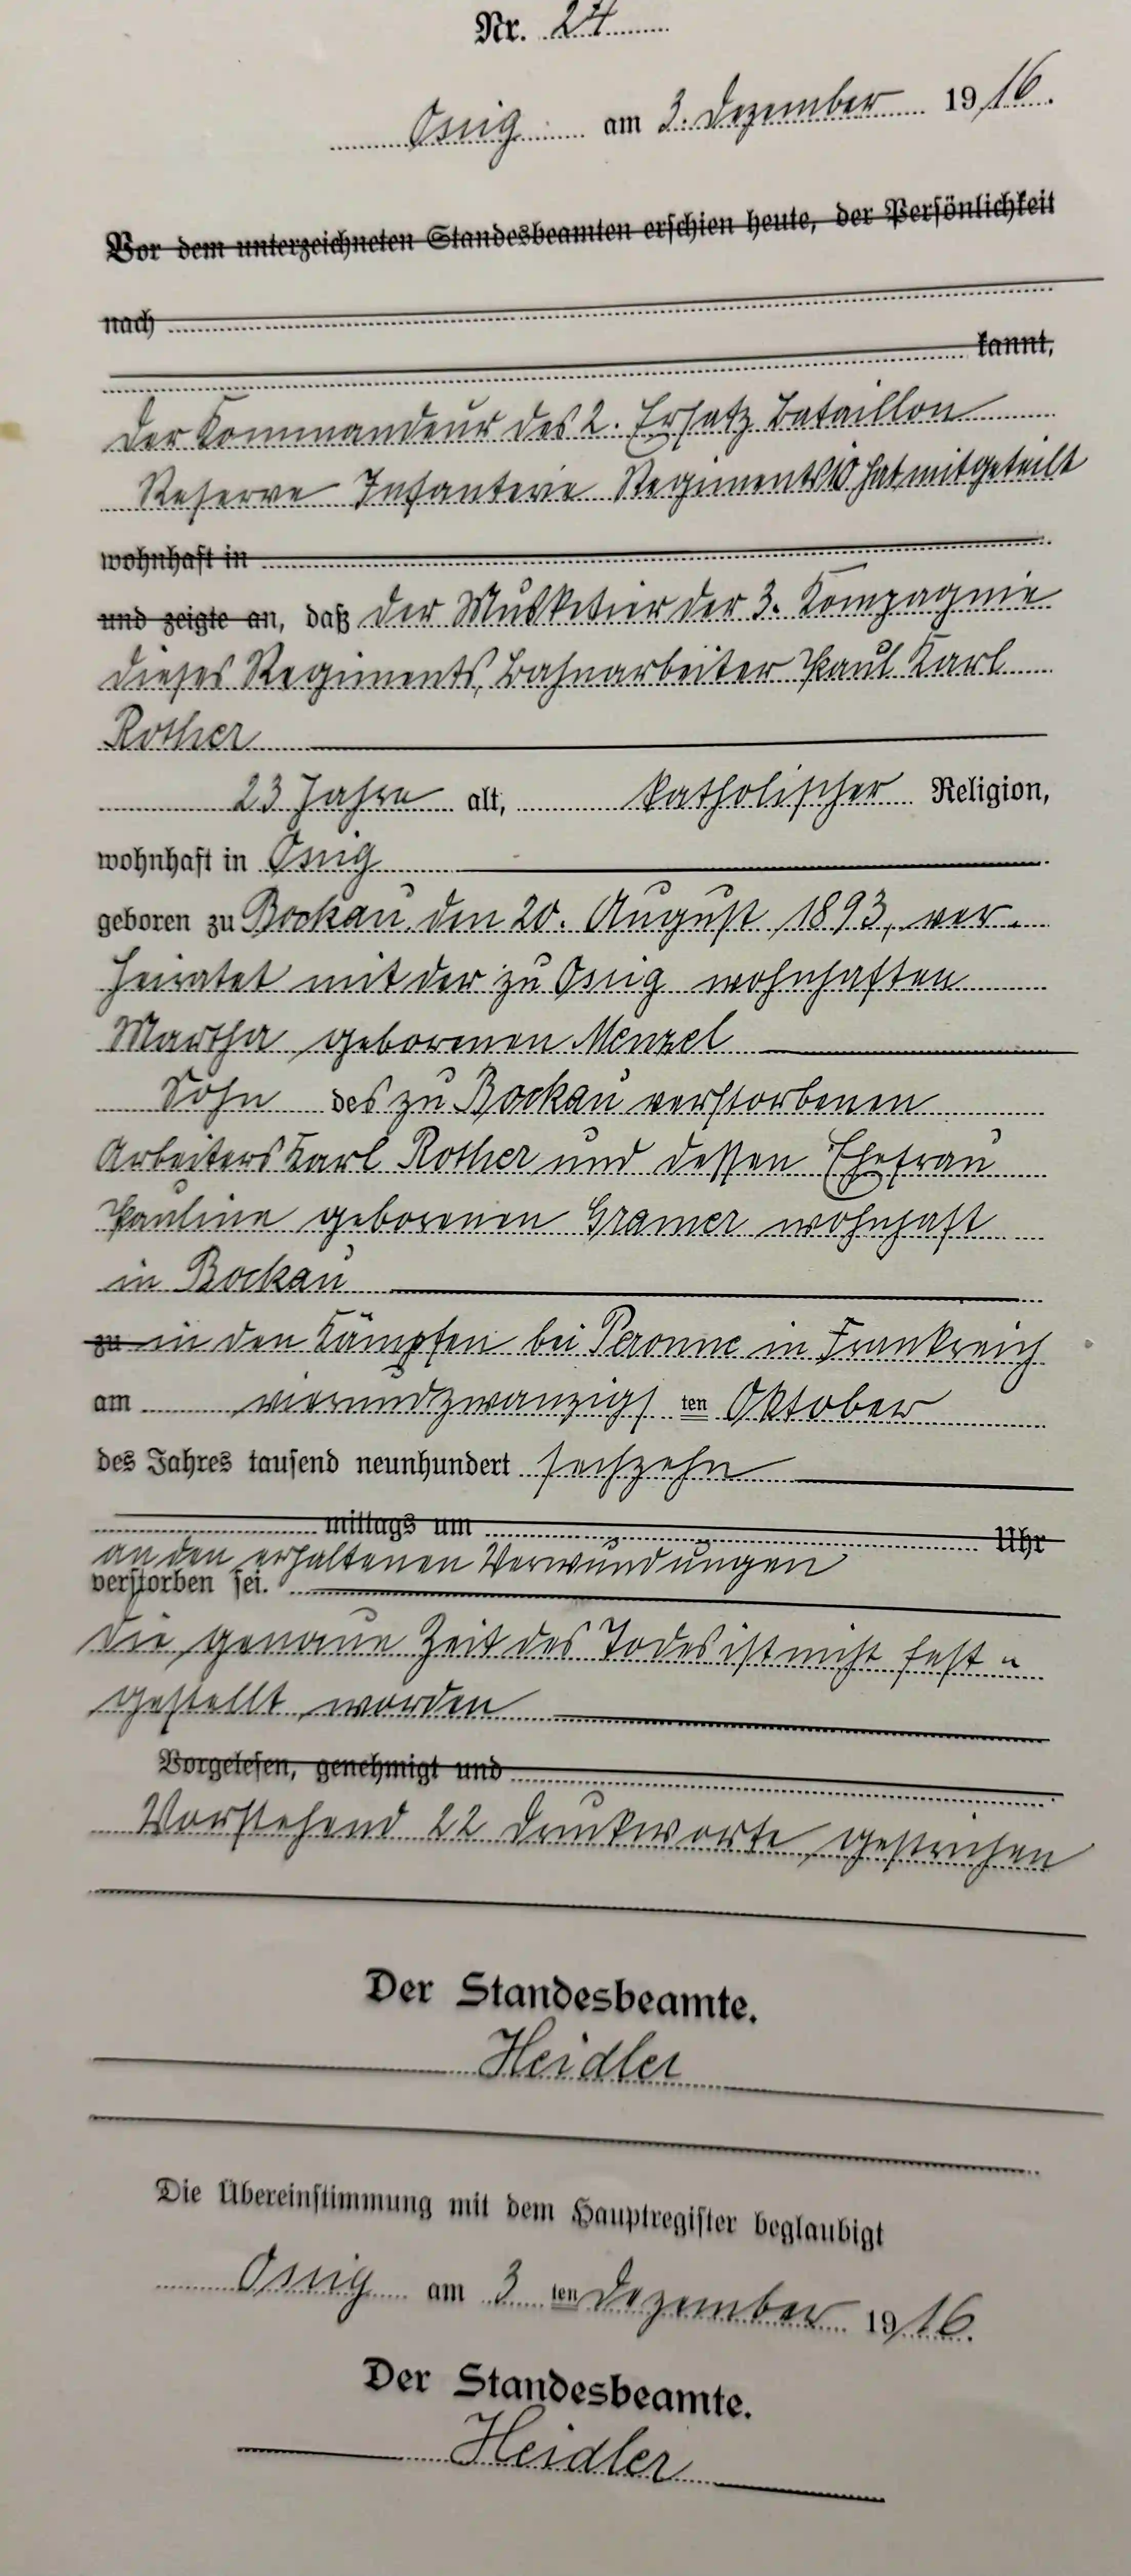 Nr. 24
Ossig am 3. Dezember 1916.
Vor dem unterzeichneten Standesbeamten erschien heute, der Persönlichkeit
nach
kannt,
Der Kommandeur des 2. Ersatz Bataillon
Reserve Infanterie Regiments 10 hat mitgeteilt
wohnhaft in
und zeigte an, daß der Musketier der 3. Kompagnie
dieses Regiments, Bahnarbeiter Paul Karl
Rother
23 Jahre alt, katholischer Religion,
wohnhaft in Ossig
geboren zu Bockau, den 20. August 1893, ver-
heiratet mit der zu Ossig wohnhaften
Martha geborenen Menzel
Sohn des zu Bockau verstorbenen
Arbeiters Karl Rother und dessen Ehefrau
Pauline geborenen Gramer wohnhaft
in Bockau
zu in den Kämpfen bei Peronne in Frankreich
am vierundzwanzigs ten Oktober
des Jahres tausend neunhundert sechzehn
mittags um Uhr
an den erhaltenen Verwundungen
verstorben sei.
Die genaue Zeit des Todes ist nicht fest-
gestellt worden
Vorgelesen, genehmigt und
Vorstehend 22 Druckworte gestrichen
Der Standesbeamte.
Heidler
Die Übereinstimmung mit dem Hauptregister beglaubigt
Ossig am 3 ten Dezember 1916.
Der Standesbeamte.
Heidler